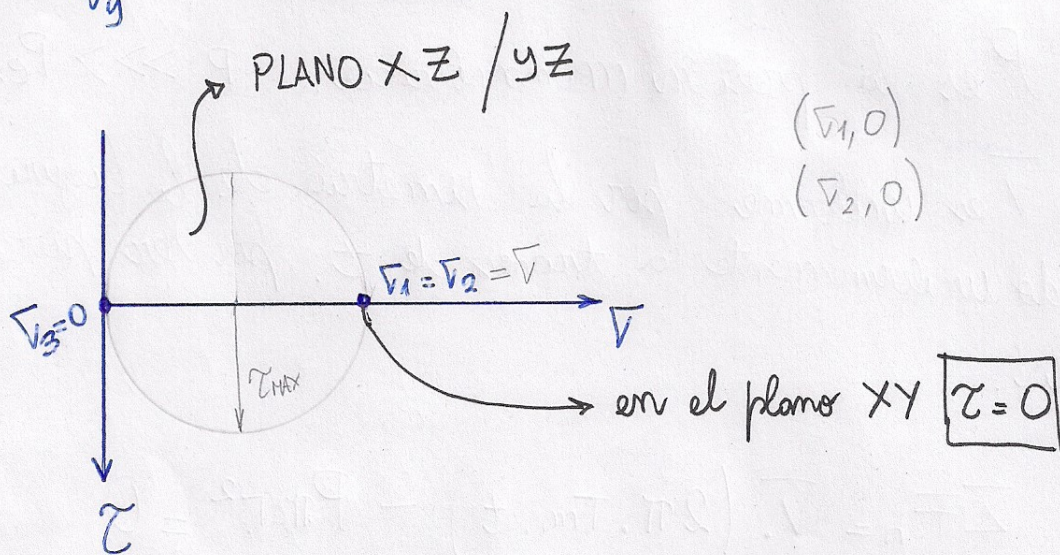 σy
PLANO XZ / YZ
(σ1, 0)
(σ2, 0)
σ1 = σ2 = σ
σ3=0
σ
τMAX
en el plano XY τ = 0
τ